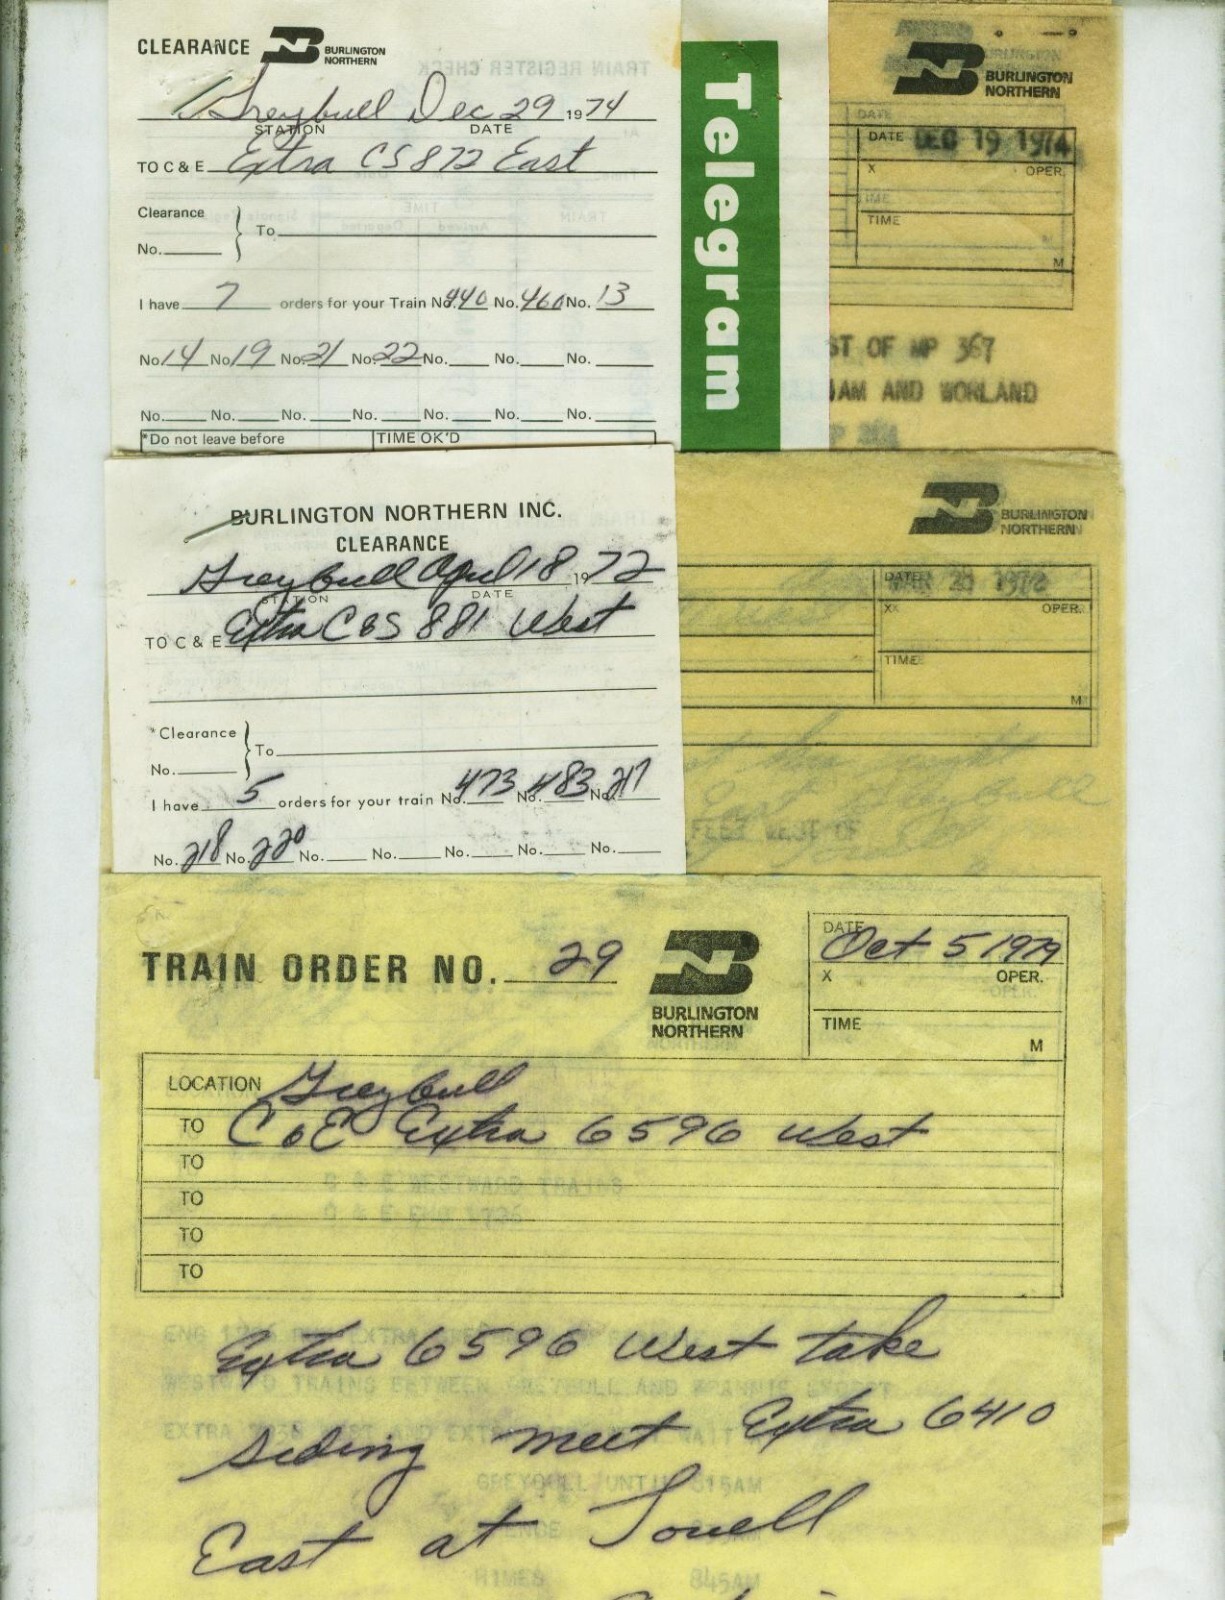 CLEARANCE BURLINGTON NORTHERN
Greybull Dec 29 1974
STATION DATE
TO C & E Extra CS 872 East
Clearance
No. To
I have 7 orders for your Train No. 440 No. 460 No. 13
No. 14 No. 19 No. 21 No. 22 No. No. No.
No. No. No. No. No. No. No.
*Do not leave before TIME OK'D
Telegram
BURLINGTON NORTHERN
DATE DEC 19 1974
X OPER.
TIME
M
ST OF MP 367
AM AND WORLAND
BURLINGTON NORTHERN INC.
CLEARANCE
Greybull April 18 1972
STATION DATE
TO C & E Extra C&S 881 West
*Clearance
No. To
I have 5 orders for your train No. 473 No. 483 No. 217
No. 218 No. 220 No. No. No. No. No.
BURLINGTON NORTHERN
DATE
X OPER.
TIME
M
FEET WEST OF
TRAIN ORDER NO. 29
BURLINGTON NORTHERN
DATE Oct 5 1979
X OPER.
TIME
M
LOCATION Greybull
TO C&E Extra 6596 West
TO
TO
TO
TO
C & E WESTWARD TRAINS
C & E ENG 1736
Extra 6596 West take
WESTWARD TRAINS BETWEEN GREYBULL AND FRANNIE EXCEPT
siding meet Extra 6410
GREYBULL UNTIL 815AM
East at Lovell
HIMES 845AM